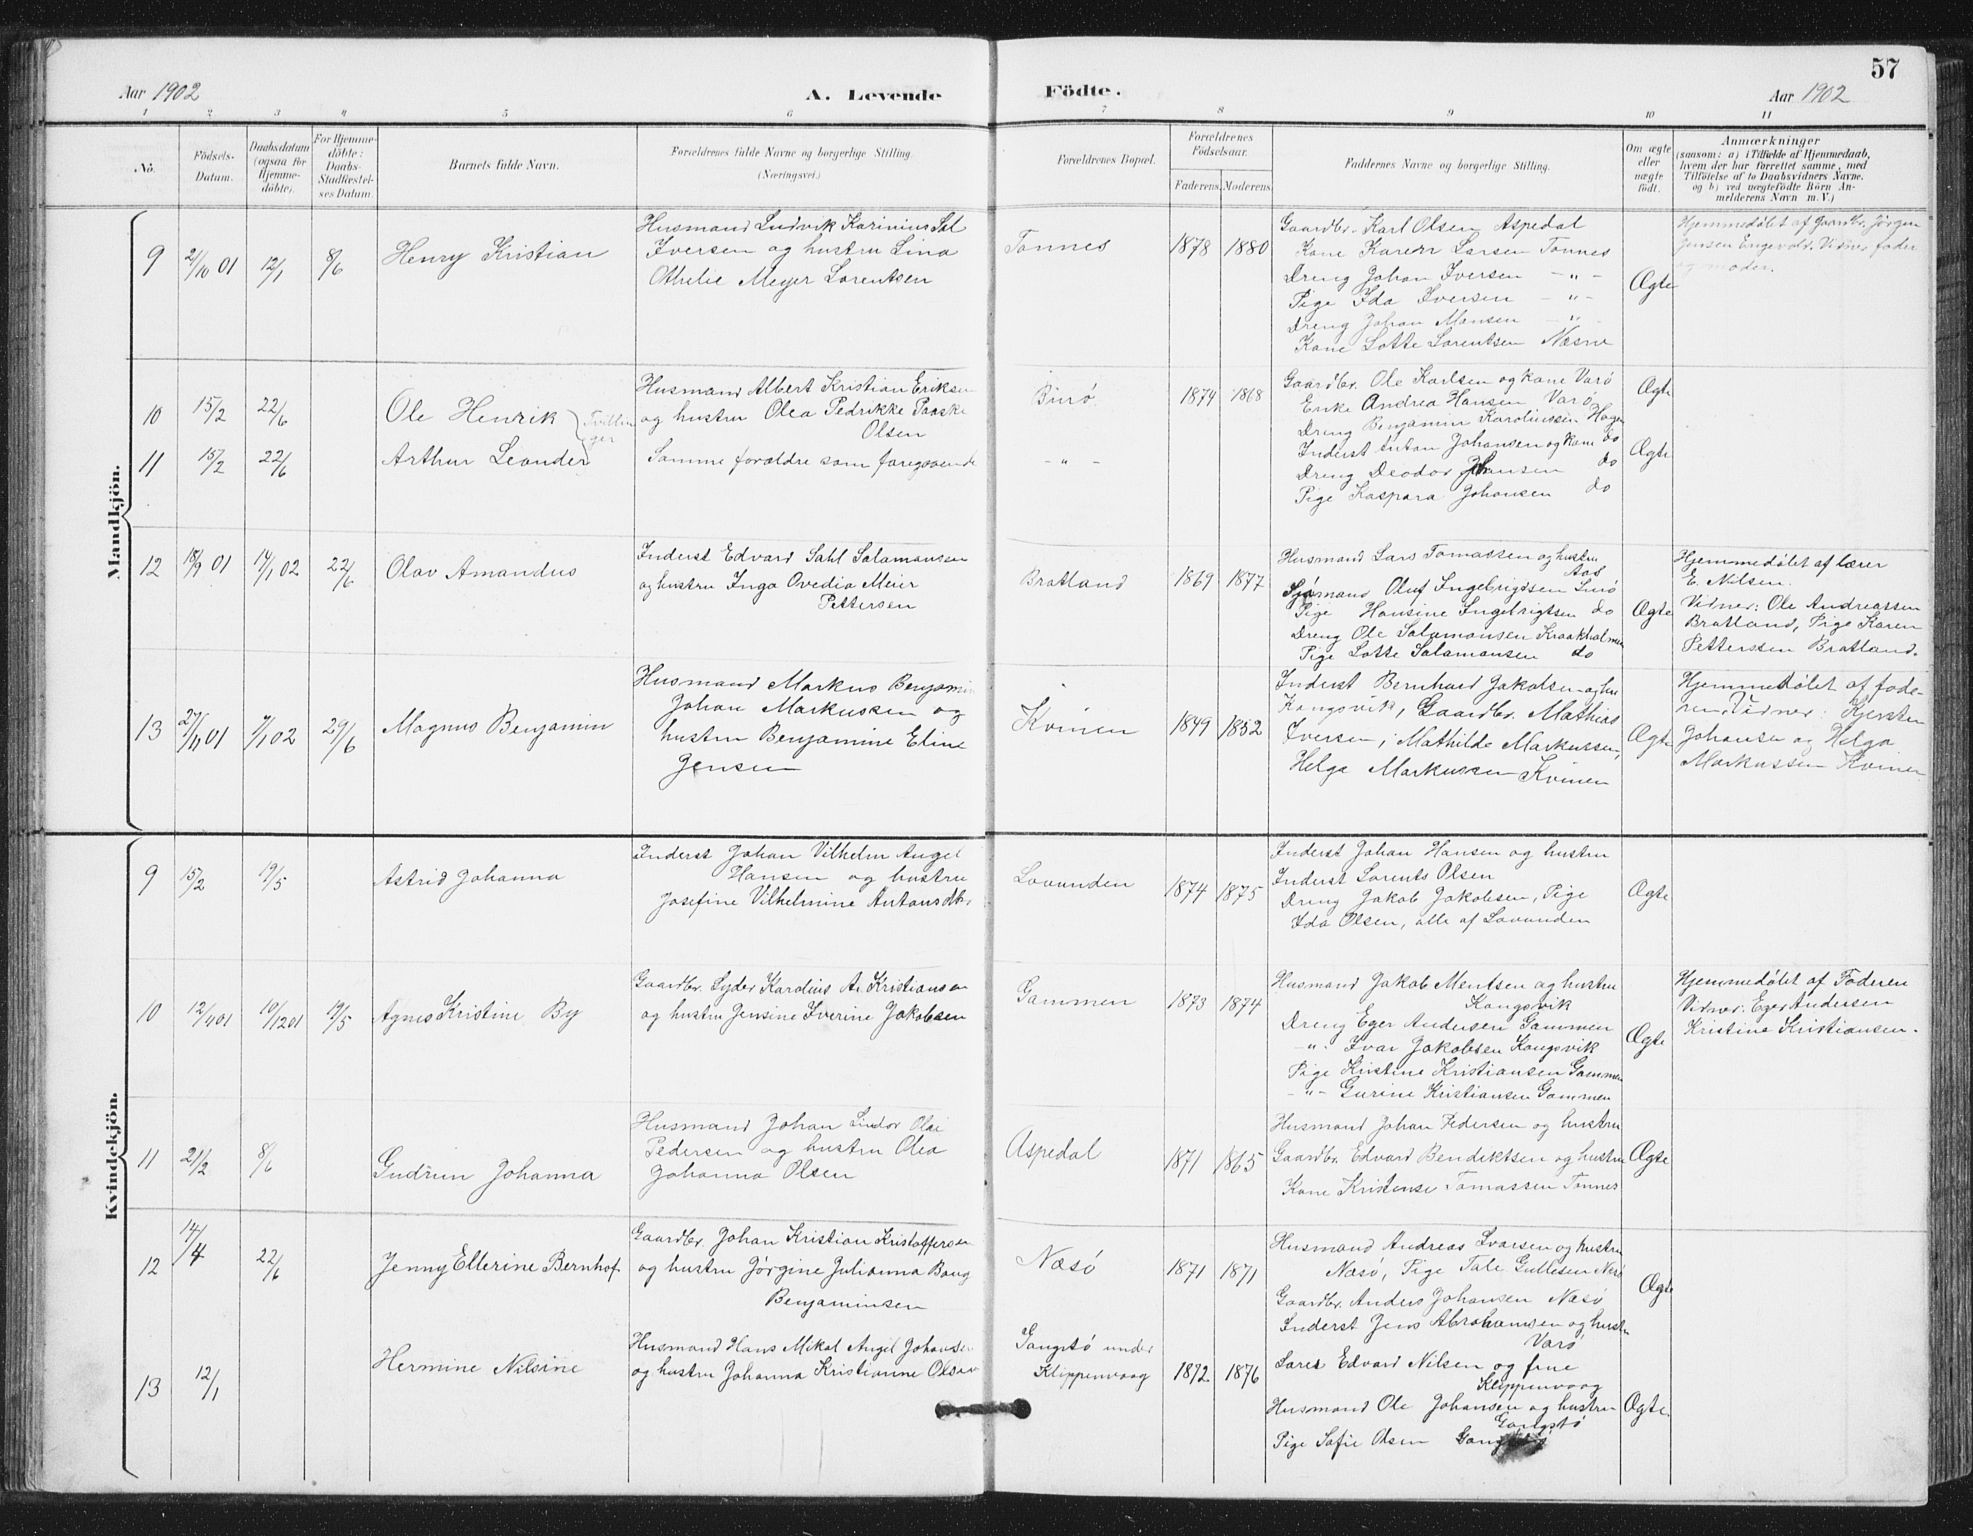 57
Aar 1902
A. Levende
Födte.
Aar 1902
1 2 3 4 5 6 7 8 9 10 11
No.
Födsels-Datum.
Daabsdatum (ogsaa for Hjemme-döbte).
For Hjemme-döbte: Daabs-Stadfæstel-ses Datum.
Barnets fulde Navn.
Forældrenes fulde Navne og borgerlige Stilling. (Næringsvei.)
Forældrenes Bopæl.
Forældrenes Födselsaar.
Faderens. Moderens.
Faddernes Navne og borgerlige Stilling.
Om ægte eller uægte født.
Anmærkninger
(saasom: a) i Tilfælde af Hjemmedaab,
hvem der har forrettet samme, med
Tilföielse af to Daabsvidners Navne.
og b) ved uægtefödte Börn An-
melderens Navn m. V.)
Mandkjön.
9 2/10 01 12/1 8/6
Henry Kristian
Husmand Ludvik Karinius Sal
Iversen og hustru Lina
Othelie Meyer Lorentsen
Tonnes
1878 1880
Gaardbr. Karl Olsen Aspedal
Kone Karen Larsen Tonnes
Dreng Johan Iversen - " -
Pige Ida Iversen - " -
Dreng Johan Monsen - " -
Kone Lotte Lorentsen Næsne
Ægte
Hjemmedøbt af Gaardbr. Jørgen
Jensen Engevold. Vidner fader
og moder.
10 15/2 22/6
Ole Henrik
Tvillinger
Husmand Albert Kristian Eriksen
og hustru Olea Pedrikke Paaske
Olsen
Burø
1874 1868
Gaardbr. Ole Karlsen og kone Varø
Enke Andrea Hansen Varø
Dreng Benjamin Karoliussen Hagen
Ægte
11 15/2 22/6
Arthur Leander
Samme forældre som foregaaende
- " -
Inderst Anton Johansen og kone do
Dreng Deodor Johansen do
Pige Kaspara Johansen do
Ægte
12 18/9 01 14/1 02 22/6
Olav Amandus
Inderst Edvard Sahl Salamonsen
og hustru Inga Ovedia Meier
Pettersen
Bratland
1869 1877
Husmand Lars Tomassen og hustru
Aas
Sømand Oluf Ingebrigtsen Lurø
Pige Hansine Ingebrigtsen do
Dreng Ole Salamonsen Kraakholmen
Pige Lotte Salamonsen do
Ægte
Hjemmedøbt af lærer
E. Nilsen.
Vidner: Ole Andreassen
Bratland, Pige Karen
Petterssen Bratland.
13 27/11 01 7/1 02 29/6
Magnus Benjamin
Husmand Markus Benjamin
Johan Markussen og
hustru Benjamine Eline
Jensen
Kvinen
1849 1852
Inderst Bernhard Jakobsen og hu
Kongsvik, Gaardbr. Mathias
Iversen, Mathilde Markussen,
Helga Markussen Kvinen
Ægte
Hjemmedøbt af fade-
ren, Vidner: Kjersten
Johansen og Helga
Markussen Kvinen
Kvindekjön.
9 15/2 19/5
Astrid Johanna
Inderst Johan Vilhelm Angel
Hansen og hustru
Josefine Vilhelmine Antonsdtr.
Lovunden
1874 1875
Inderst Johan Hansen og hustru
Inderst Lorents Olsen
Dreng Jakob Jakobsen, Pige
Ida Olsen, alle af Lovunden
Ægte
10 12/4 01 10/12 01 19/5
Agnes Kristine By
Gaardbr. Lyder Kardius Ar. Kristiansen
og hustru Jensine Iverine Jakobsen
Gammen
1873 1874
Husmand Jakob Mentsen og hustru
Kongsvik
Dreng Eger Andersen Gammen
- " - Ivar Jakobsen Kongsvik
Pige Kristine Kristiansen Gammen
- " - Gurine Kristiansen Gammen
Ægte
Hjemmedøbt af Faderen
Vidner: Eger Andersen
Kristine Kristiansen.
11 21/2 8/6
Gudrun Johanna
Husmand Johan Lindor Olai
Pedersen og hustru Olea
Johanna Olsen
Aspedal
1871 1865
Husmand Johan Pedersen og hustru
Gaardbr. Edvard Bendiktsen og hustru
Kone Kristense Tomassen Tonnes
Ægte
12 14/4 22/6
Jenny Ellerine Bernhof
Gaardbr Johan Kristian Kristoffersen
og hustru Jørgine Julianna Bang
Benjaminsen
Næsø
1871 1871
Husmand Andreas Ivarsen og hustru
Næsø, Pige Tale Gullesen Næsø
Gaardbr. Anders Johansen Næsø
Inderst Jens Abrahamsen og hustru
Varø
Ægte
13 12/1
Hermine Nilsine
Husmand Hans Mikal Angel Johansen
og hustru Johanna Kristianne Olsen
Gangstø under
Klippenvaag
1872 1876
Lares Edvard Nilsen og fine
Klippenvaag
Husmand Ole Johansen og hustru
Gangstø
Pige Sofie Olsen Gangstø
Ægte